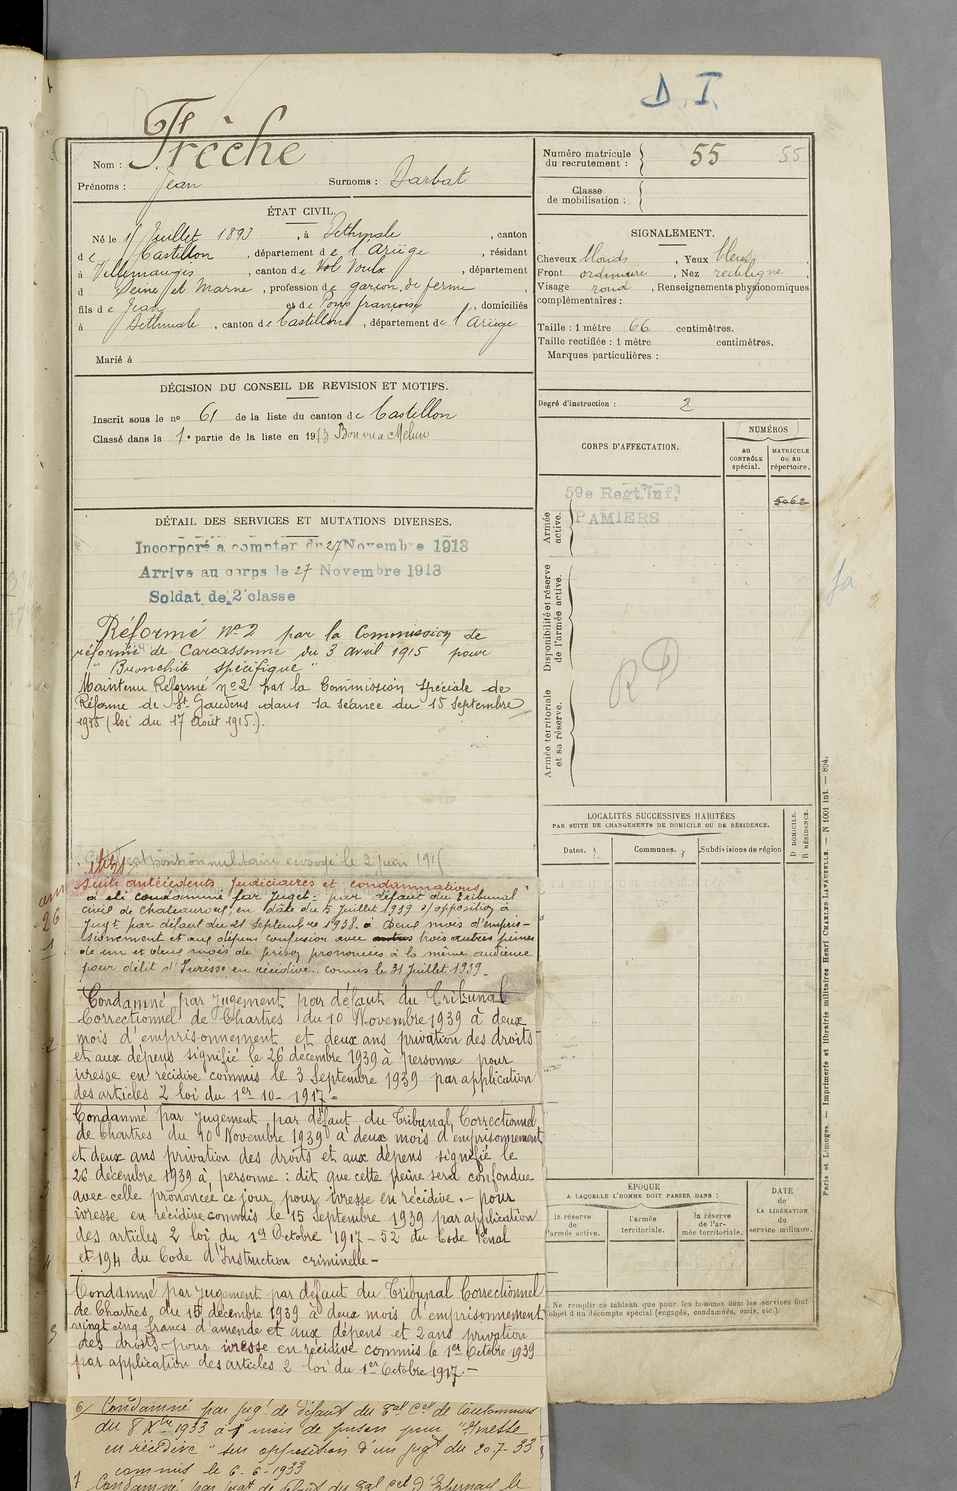 D. I.
Nom : Frèche
Prénoms : Jean Surnoms : Darbat
Numéro matricule du recrutement : 55 55
Classe de mobilisation :
ÉTAT CIVIL.
Né le 1 Juillet 1893, à Bethmale, canton
de Castillon, département de l'Ariège, résidant
à Villemaugis, canton de, département
d Seine et Marne, profession de garçon de ferme,
fils de Jean et de Pons françoise, domiciliés
à Bethmale, canton de Castillon, département de l'Ariège
Marié à
SIGNALEMENT.
Cheveux blonds, Yeux bleus,
Front ordinaire, Nez rectiligne,
Visage rond, Renseignements physionomiques
complémentaires :
Taille : 1 mètre 66 centimètres.
Taille rectifiée : 1 mètre centimètres.
Marques particulières :
Degré d'instruction : 2
DÉCISION DU CONSEIL DE REVISION ET MOTIFS.
Inscrit sous le nº 61 de la liste du canton de Castillon
Classé dans la 1e partie de la liste en 1913 Bon vu a Melun
DÉTAIL DES SERVICES ET MUTATIONS DIVERSES.
Incorporé à compter du 27 Novembre 1913
Arrivé au corps le 27 Novembre 1913
Soldat de 2e classe
Réformé nº 2 par la Commission de
réforme de Carcassonne du 3 avril 1915 pour
" Bronchite spécifique "
Maintenu Réformé nº 2 par la Commission spéciale de
Réforme de St Gaudens dans sa séance du 15 septembre
1915 (loi du 17 Août 1915).
position militaire envoyé le 2 juin
Suite antécédents judiciaires et condamnations
a été condamné par Jugt par défaut du tribunal
civil de Chateauroux, en date du 5 Juillet 1939 s/ opposition à
Jugt par défaut du 21 Septembre 1938 à deux mois d'empris-
sionement et aux dépens confusion avec autres trois autres peines
de un et deux mois de prison prononcées à la même audience
pour délit d'Ivresse en récidive.. commis le 31 Juillet 1939 _
Condamné par Jugement par défaut du Tribunal
Correctionnel de Chartres du 10 Novembre 1939 à deux
mois d'emprisonnement et deux ans privation des droits
et aux dépens signifié le 26 décembre 1939 à personne pour
ivresse en récidive commis le 3 Septembre 1939 par application
des articles 2 loi du 1er 10 - 1917 -
Condamné par Jugement par défaut du Tribunal Correctionnel
de Chartres du 10 Novembre 1939 à deux mois d'emprisonnement
et deux ans privation des droits et aux dépens signifié le
26 décembre 1939 à personne : dit que cette peine sera confondue
avec celle prononcée ce jour pour ivresse en récidive.- pour
ivresse en récidive commis le 15 septembre 1939 par application
des articles 2 loi du 1er Octobre 1917 - 52 du Code Pénal
et 194 du Code d'Instruction criminelle -
Condamné par Jugement par défaut du Tribunal Correctionnel
de Chartres, du 15 décembre 1939 à deux mois d'emprisonnement
vingt cinq francs d'amende et aux dépens et 2 ans privation
des droits - pour ivresse en récidive commis le 1er Octobre 1939
par application des articles 2 loi du 1er Octobre 1917 -
6/ Condamné par Jugt de défaut du Tal Cel de Coulommiers
du 8 Xbre 1933 à 1 mois de prison pour "Ivresse
en récidive" sur opposition d'un jugt du 20-7-33
commis le 6-6-1933
7 Condamné par jugt de défaut du Tal Cel d'Epernay le
CORPS D'AFFECTATION.
NUMÉROS
au CONTRÔLE spécial.
MATRICULE ou au répertoire.
Armée active.
59e Regt. Inf.
PAMIERS
5062
Disponibilité et réserve de l'armée active.
Armée territoriale et sa réserve.
R D
LOCALITÉS SUCCESSIVES HABITÉES
PAR SUITE DE CHANGEMENTS DE DOMICILE OU DE RÉSIDENCE.
Dates. Communes. Subdivisions de région
D DOMICILE.
R RÉSIDENCE.
ÉPOQUE
A LAQUELLE L'HOMME DOIT PASSER DANS :
la réserve de l'armée active.
l'armée territoriale.
la réserve de l'armée territoriale.
DATE de LA LIBÉRATION du service militaire.
Ne remplir ce tableau que pour les hommes dont les services font
l'objet d'un décompte spécial (engagés, condamnés, omis, etc.).
Paris et Limoges. — Imprimerie et librairie militaires Henri CHARLES-LAVAUZELLE. — N 1001 int. — 894.